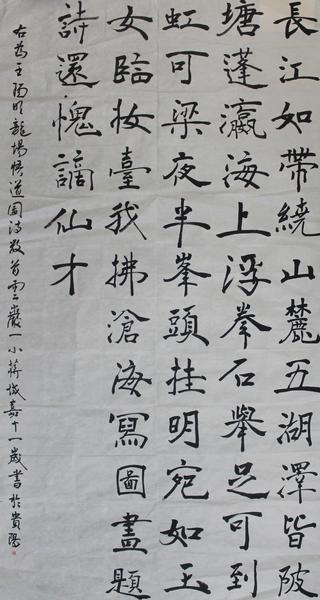 長江如帶繞山麓五湖澤皆陂
塘蓬瀛海上浮拳石舉足可到
虹可梁夜半峯頭挂明宛如玉
女臨妝臺我拂滄海寫圖畫題
詩還愧謫仙才
古為王陽明龍場悟道圖詩數首雲巖一小蔣城嘉十一歲書於貴陽